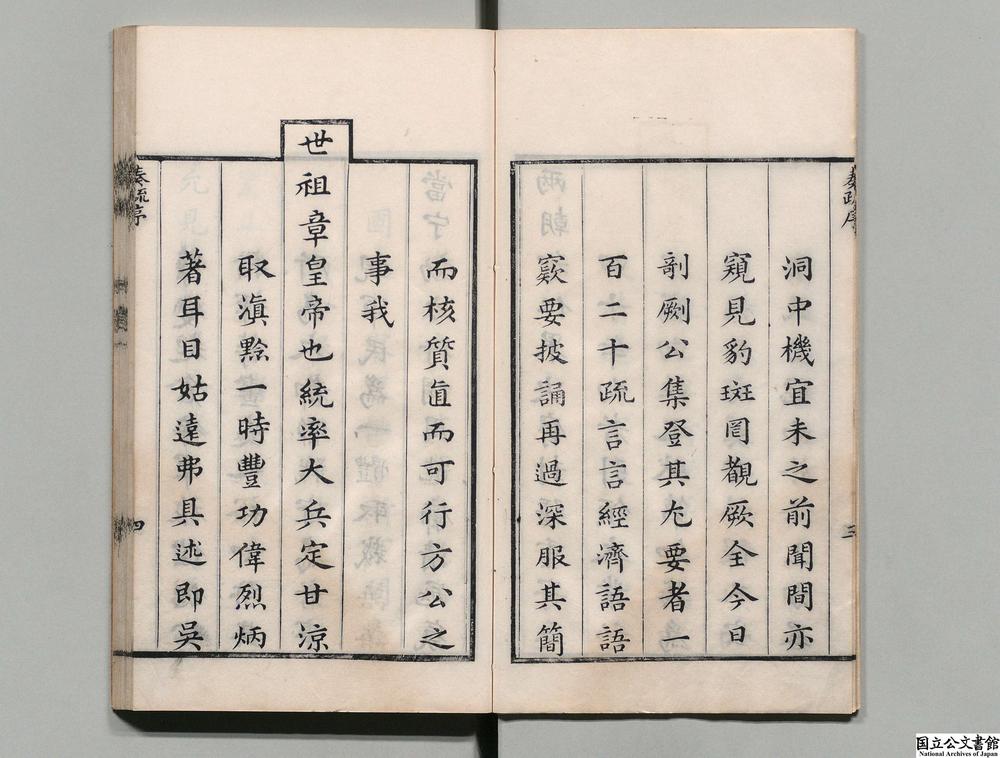 奏疏序
三
洞中機宜未之前聞間亦
窺見豹斑罔覩厥全今日
剞劂公集登其尤要者一
百二十疏言言經濟語語
窾要披誦再過深服其簡
而核質直而可行方公之
事我
世祖章皇帝也統率大兵定甘涼
取滇黔一時豐功偉烈炳
著耳目姑遠弗具述即吳
奏疏序
四
国立公文書館
National Archives of Japan